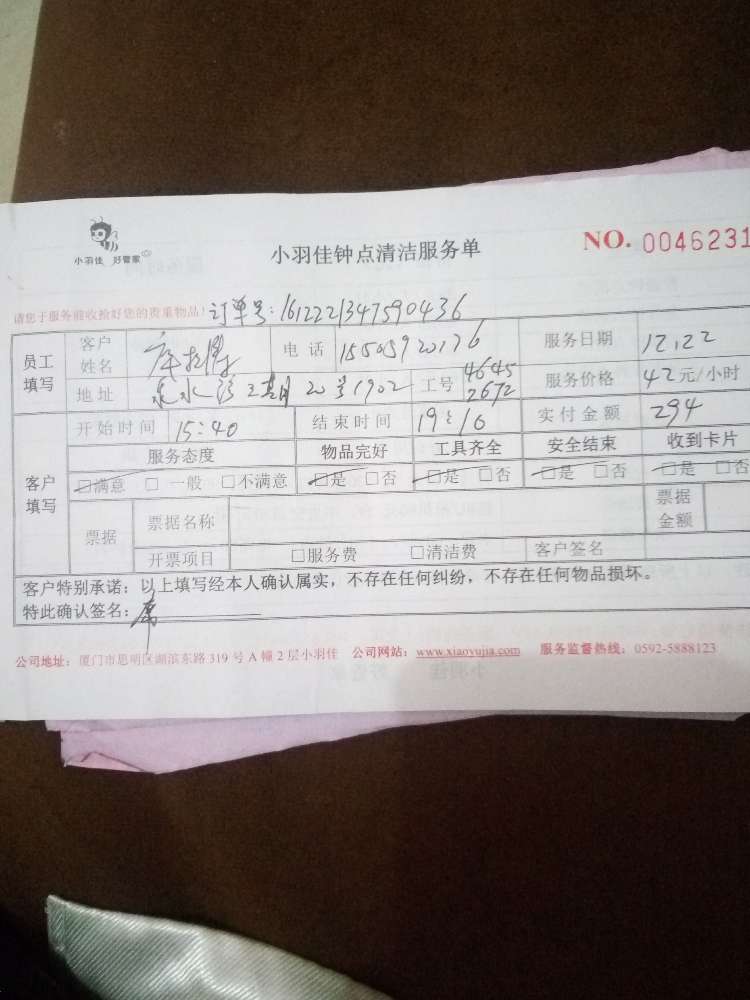 小羽佳 好管家
小羽佳钟点清洁服务单
NO. 0046231
请您于服务前收捡好您的贵重物品! 订单号: 1612221347590436
员工填写 客户姓名 电话 15505920176 服务日期 12.22
地址 20号1902 工号 4645 2672 服务价格 42元/小时
客户填写 开始时间 15:40 结束时间 19:10 实付金额 294
服务态度 物品完好 工具齐全 安全结束 收到卡片
□满意 □一般 □不满意 □是 □否 □是 □否 □是 □否 □是 □否
票据 票据名称 票据金额
开票项目 □服务费 □清洁费 客户签名
客户特别承诺:以上填写经本人确认属实,不存在任何纠纷,不存在任何物品损坏。
特此确认签名:
公司地址:厦门市思明区湖滨东路 319 号 A 幢 2 层小羽佳 公司网站:www.xiaoyujia.com 服务监督热线:0592-5888123